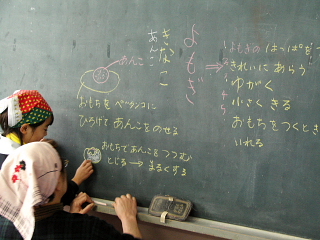 よもぎ
よもぎの はっぱを
きれいに あらう
ゆがく
小さく きる
おもちをつくとき
いれる
きなこ
あんこ
あんこ
おもちを ペッタンコに
ひろげて あんこをのせる
おもちで あんこを つつむ
とじる → まるくする